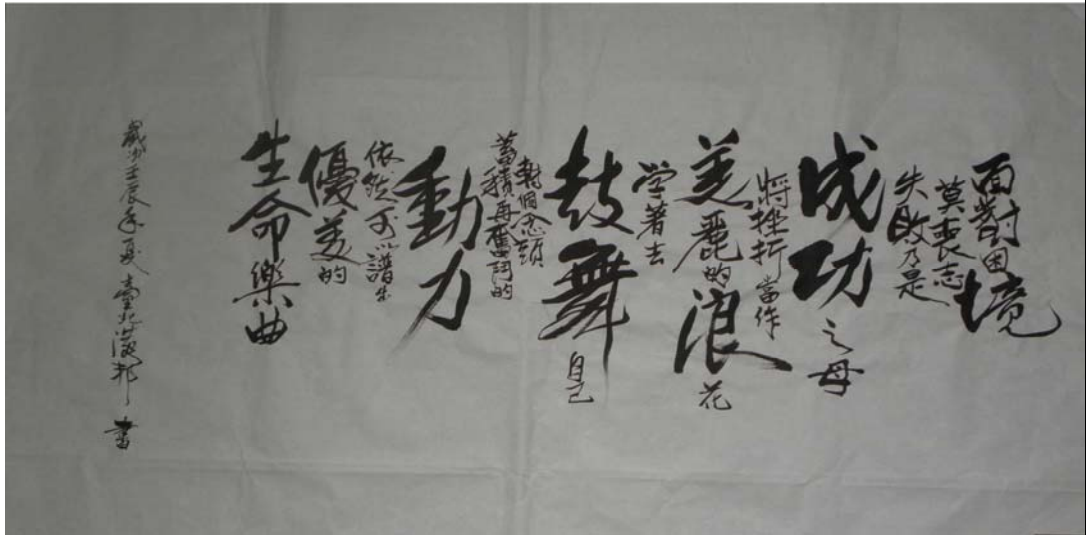 面對困境
莫喪志
失敗乃是
成功之母
將挫折當作
美麗的浪花
學著去
鼓舞自己
轉個念頭
蓄積再奮鬥的
動力
依然可以譜出
優美的
生命樂曲
歲次壬辰年夏臺北漢邦書